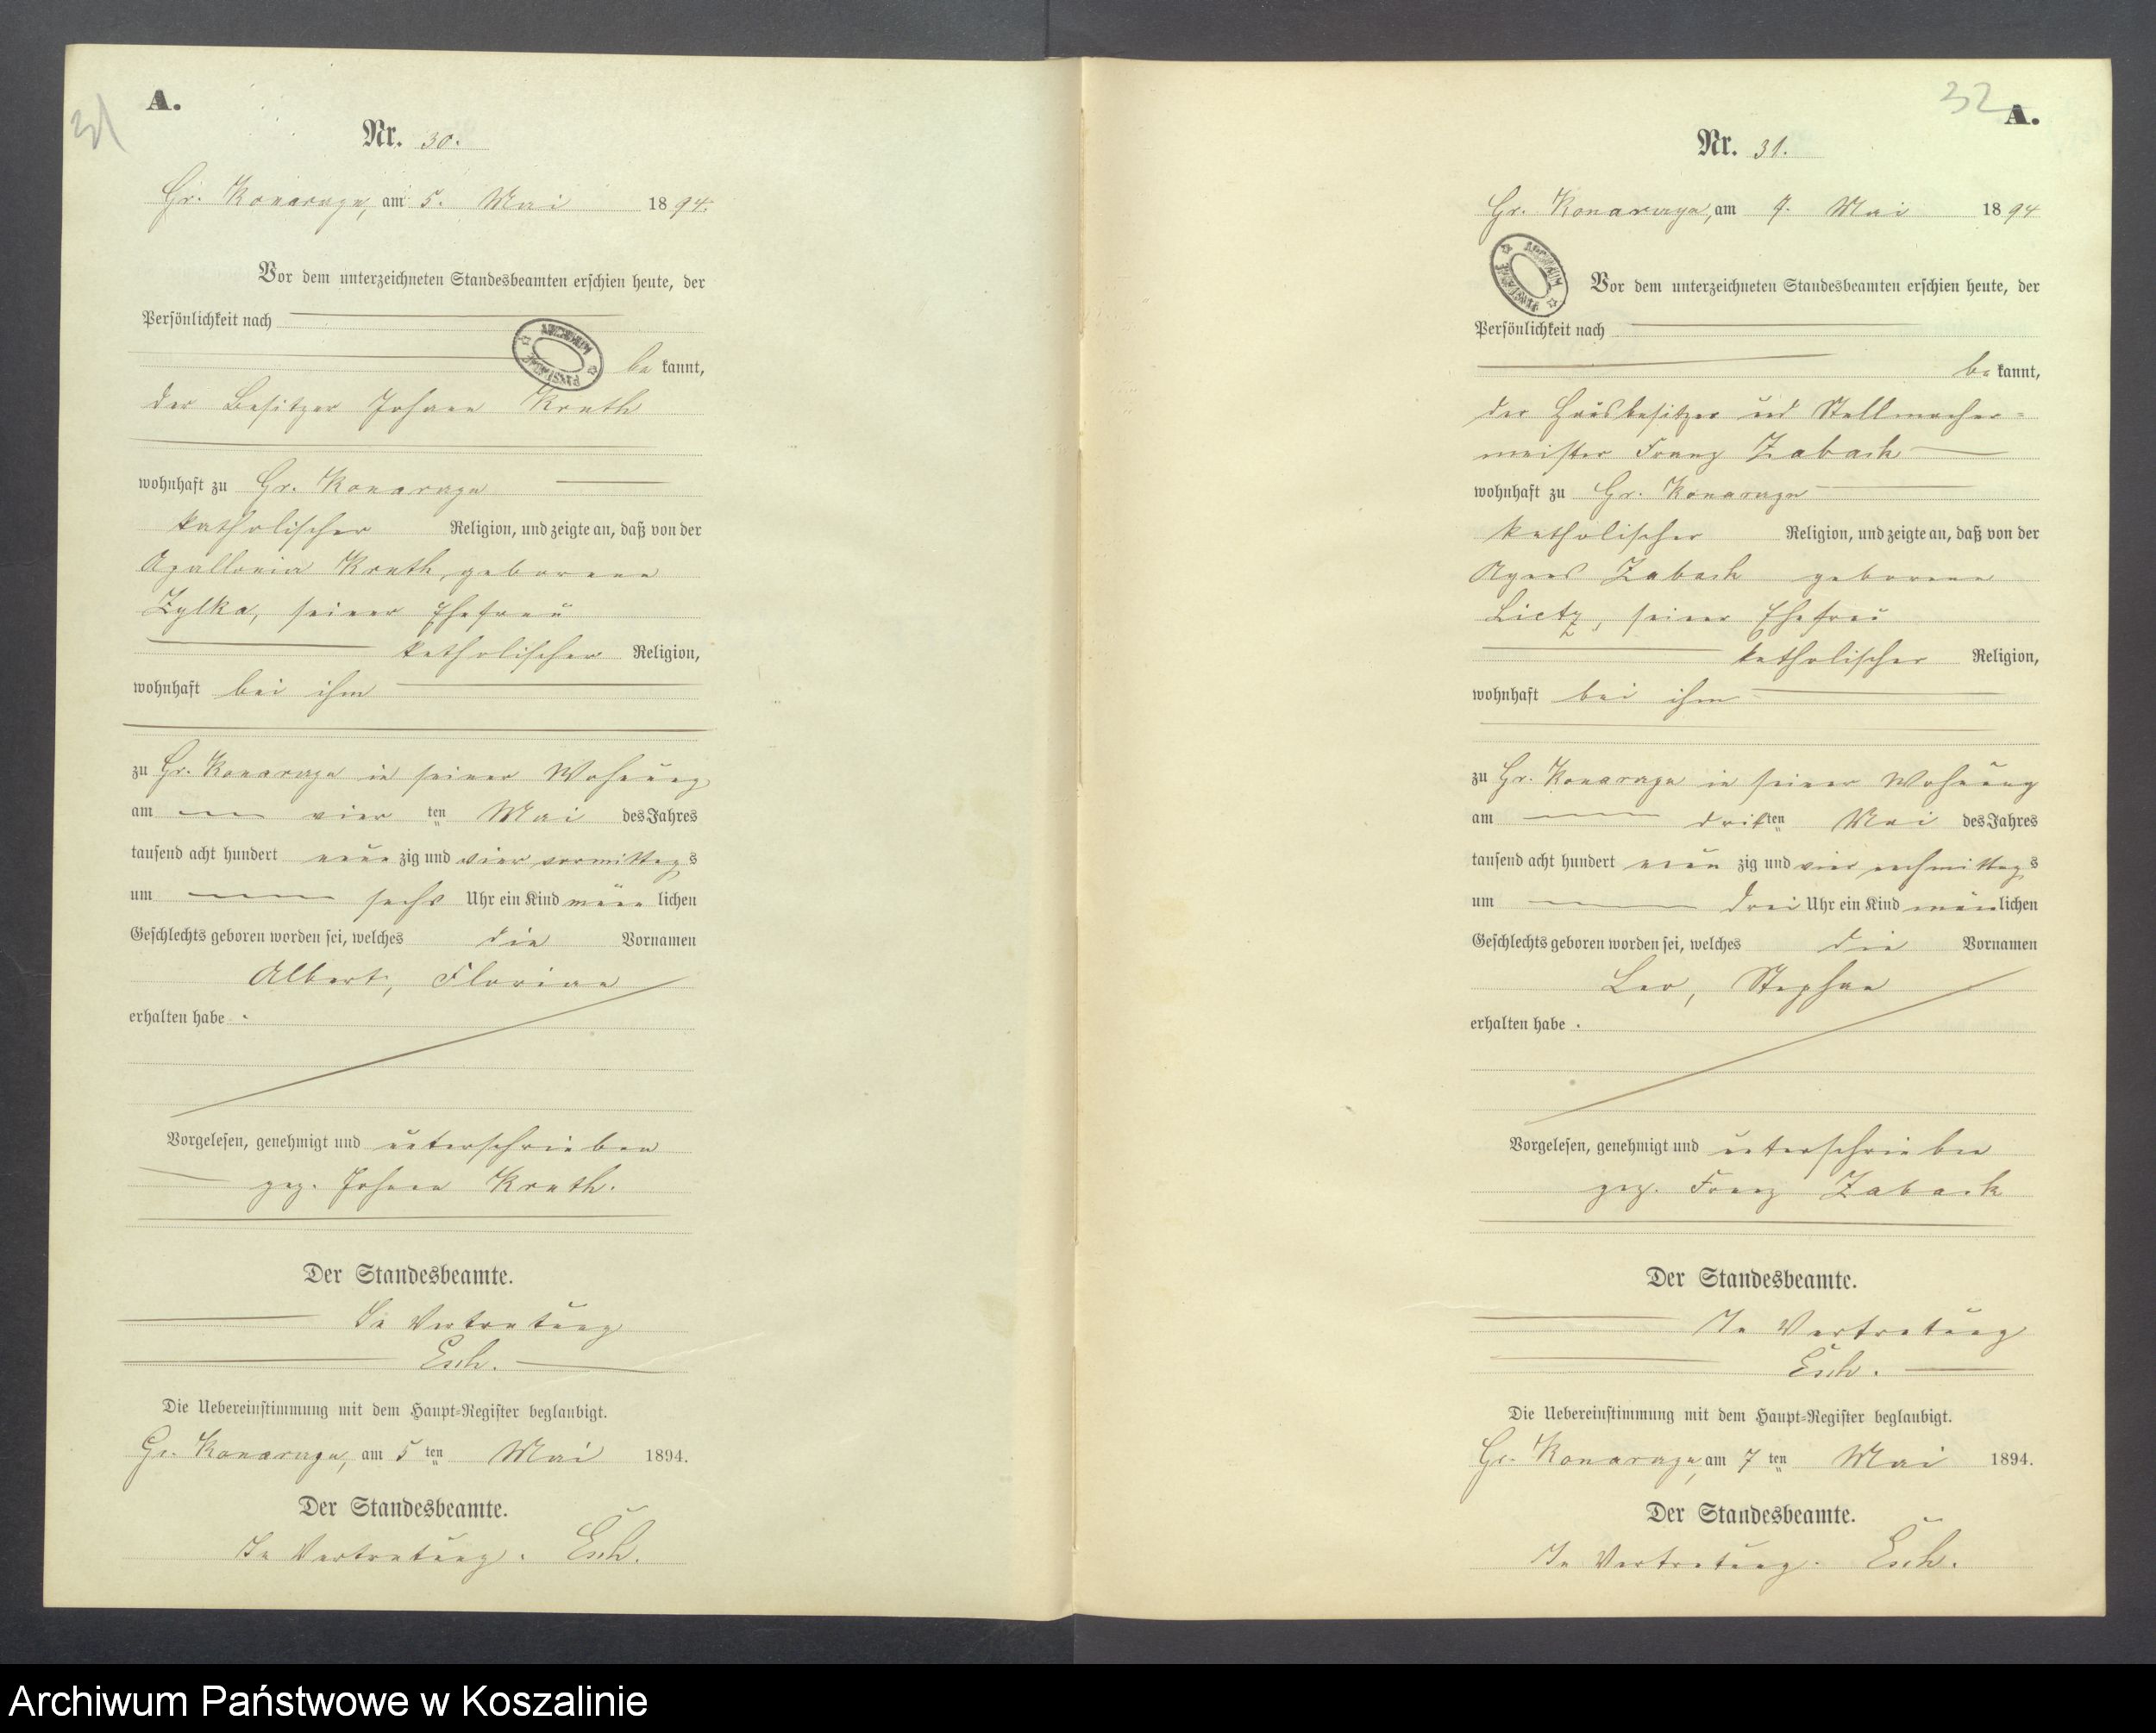 31
A.
Nr. 30.
Gr. Konarczyn, am 5. Mai 1894.
Vor dem unterzeichneten Standesbeamten erschien heute, der
Persönlichkeit nach
be kannt,
der Besitzer Johann
wohnhaft zu Gr. Konarczyn
katholischer Religion, und zeigte an, daß von der
geborene
Zylka, seiner Ehefrau
katholischer Religion,
wohnhaft bei ihm
zu Gr. Konarczyn in seiner Wohnung
am vier ten Mai des Jahres
tausend acht hundert neun zig und vier vormittags
um sechs Uhr ein Kind männ lichen
Geschlechts geboren worden sei, welches die Vornamen
Albert, Florian
erhalten habe.
Vorgelesen, genehmigt und unterschrieben
gez. Johann
Der Standesbeamte.
In Vertretung
Esch.
Die Uebereinstimmung mit dem Haupt-Register beglaubigt.
Gr. Konarczyn, am 5 ten Mai 1894.
Der Standesbeamte.
In Vertretung. Esch.
32
A.
Nr. 31.
Gr. Konarczyn, am 7. Mai 1894
ARCHIWUM PAŃSTWOWE
Vor dem unterzeichneten Standesbeamten erschien heute, der
Persönlichkeit nach
be kannt,
der Hausbesitzer und Stellmacher-
meister Franz Zabach
wohnhaft zu Gr. Konarczyn
katholischer Religion, und zeigte an, daß von der
Agnes Zabach geborene
Lietz, seiner Ehefrau
katholischer Religion,
wohnhaft bei ihm
zu Gr. Konarczyn in seiner Wohnung
am dritten Mai des Jahres
tausend acht hundert neun zig und vier nachmittags
um drei Uhr ein Kind männlichen
Geschlechts geboren worden sei, welches die Vornamen
Leo, Stephan
erhalten habe.
Vorgelesen, genehmigt und unterschrieben
gez. Franz Zabach
Der Standesbeamte.
In Vertretung
Esch.
Die Uebereinstimmung mit dem Haupt-Register beglaubigt.
Gr. Konarczyn, am 7 ten Mai 1894.
Der Standesbeamte.
In Vertretung. Esch.
Archiwum Państwowe w Koszalinie